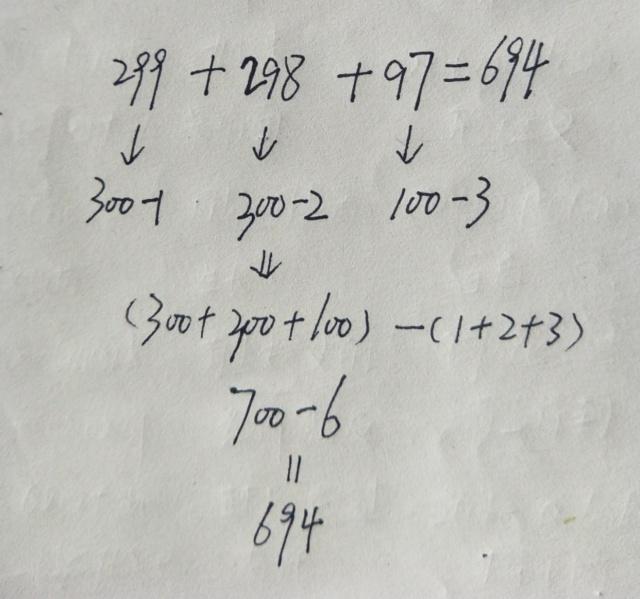 299 + 298 + 97 = 694
↓ ↓ ↓
300-1 300-2 100-3
⇓
(300+300+100) -(1+2+3)
700-6
॥
694